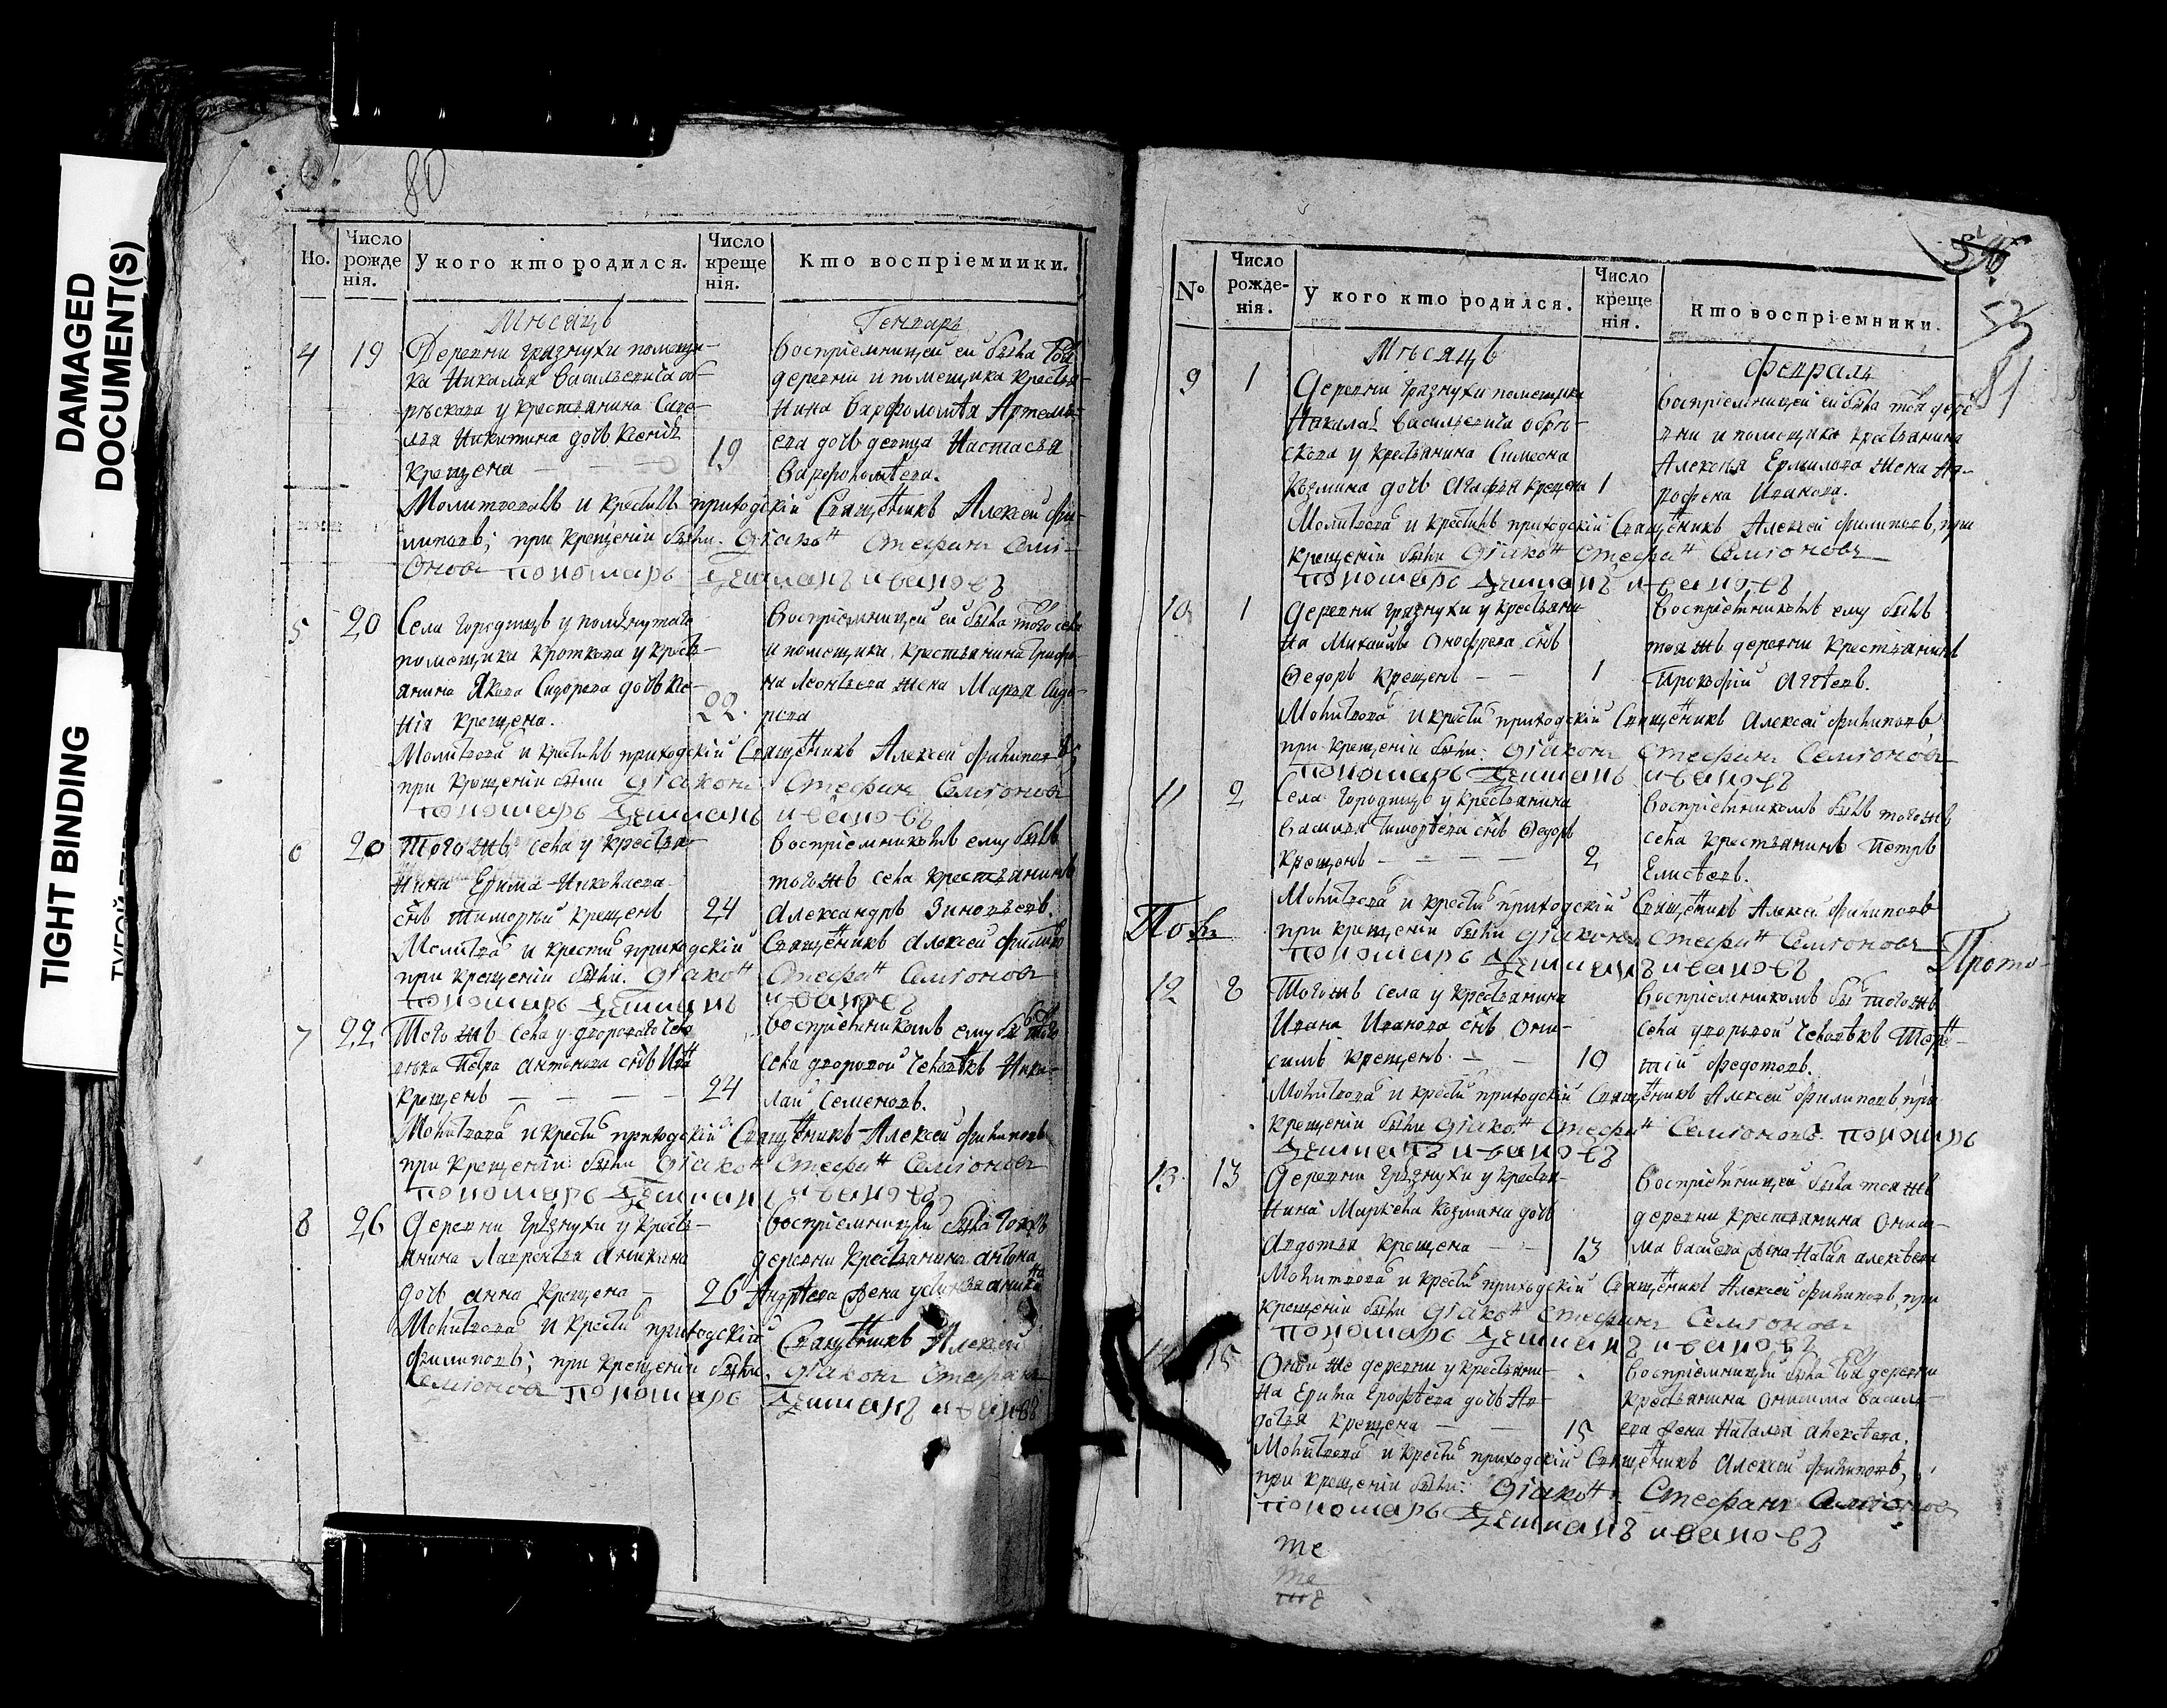 DAMAGED
DOCUMENT(S)
TIGHT BINDING
80
Но.
Число
рожде
нія.
У кого кто родился.
Число
креще
нія.
Кто воспріемники.
Мѣсяцъ
Генварь
4 19
Деревни Грязнухи помещи-
ка Николая Васильевича об-
рѣскова у крестьянина Саве-
лья Никитина дочь Ксенія
крещена
19
воспріемницей ей была тойж
деревни и помещика крестья-
нина Варфоломѣя Артемь-
ева дочь девица Настасья
Варфоломѣева.
Молитвовалъ и крестилъ приходскій Священникъ Алексей Фи-
липовъ; при крещеніи были. Діаконъ Стефанъ Семі-
оновъ пономарь Демианъ Ивановъ
5 20
Села Городищъ у помянутаго
помещика Кроткова у крест-
янина Якова Сидорова дочь Ксе-
нія крещена.
22.
воспріемницей ей была тогож села
и помещика крестьянина Трифо-
на Леонтьева жена Марья Сидо-
рова
Молитвовалъ и крестилъ приходскій Священникъ Алексей Филиповъ
при крещеніи были Діаконъ Стефанъ Семіоновъ
пономарь Демианъ Ивановъ
6 20
Тогожъ села у крестья-
нина Ефима Николаева
снъ Тимофей крещенъ
24
воспріемникомъ ему былъ
тогожъ села крестьянинъ
Александръ Зиновьевъ.
Молитвовалъ и крестилъ приходскій Священникъ Алексей Филиповъ
при крещеніи были. Діаконъ Стефанъ Семіоновъ
пономарь Демианъ Ивановъ
7 22
Тогожъ села у двороваго чело-
века Петра Антонова снъ Иванъ
крещенъ
24
воспріемникомъ ему былъ тогожъ
села дворовой человѣкъ Нико-
лай Семеновъ.
Молитвовалъ и крестилъ приходскій Священникъ Алексей Филиповъ
при крещеніи были Діаконъ Стефанъ Семіоновъ
пономарь Демианъ Ивановъ
8 26
Деревни Грязнухи у крест-
янина Лаврентья Аникина
дочь Анна крещена
26
воспріемницей была тойжъ
деревни крестьянина Антона
Андрѣева жена Устинья Аникина
Молитвовалъ и крестилъ приходскій Священникъ Алексей
Филиповъ; при крещеніи были. Діаконъ Стефанъ
Семіоновъ пономарь Демианъ Ивановъ
53
81
No
Число
рожде-
нія.
У кого кто родился.
Число
креще
нія.
Кто воспріемники.
Мѣсяцъ
Февраль
9 1
Деревни Грязнухи помещика
Николая Васильевича обрѣ-
скова у крестьянина Симеона
Козмина дочь Агафья крещена
1
воспріемницей ей была тойж дере-
вни и помещика крестьянина
Алексея Ермилова жена Ав-
рофена Иванова.
Молитвовалъ и крестилъ приходскій Священникъ Алексей Филиповъ, при
крещеніи были Діаконъ Стефанъ Семіоновъ
пономарь Демианъ Ивановъ
10 1
Деревни Грязнухи у крестьяни-
на Михайлы Онофрева снъ
Федоръ крещенъ
1
воспріемникомъ ему былъ
тояжъ деревни крестьянинъ
Прокофій Агѣевъ.
Молитвовалъ и крестилъ приходскій Священникъ Алексей Филиповъ
при крещеніи были. Діаконъ Стефанъ Семіоновъ
пономарь Демианъ Ивановъ
11 2
Села Городищъ у крестьянина
Василья Тимофѣева снъ Федоръ
крещенъ
2
воспріемникомъ былъ тогожъ
села крестьянинъ Петръ
Елисѣевъ.
Молитвовалъ и крестилъ приходскій Священникъ Алексей Филиповъ
при крещеніи были Діаконъ Стефанъ Семіоновъ
пономарь Демианъ Ивановъ
Прото-
12 8
Тогожъ села у крестьянина
Ивана Иванова снъ Они-
симъ крещенъ.
10
воспріемникомъ бы тогожъ
села дворовой человѣкъ Терен-
тій Федотовъ.
Молитвовалъ и крестилъ приходскій Священникъ Алексей Филиповъ, при
крещеніи были Діаконъ Стефанъ Семіоновъ. пономарь
Демианъ Ивановъ
13 13
Деревни Грязнухи у крестья-
нина Маркела Козмина дочь
Авдотья крещена
13
воспріемницей была тояжъ
деревни крестьянинаОниси-
ма Васильева жена Наталья Алексѣева
Молитвовалъ и крестилъ приходскій Священникъ Алексей Филиповъ, при
крещеніи были Діаконъ Стефанъ Семіоновъ
пономарь Демианъ Ивановъ
14 15
Оной же деревни у крестьяни-
на Ерофѣева дочь Ав-
дотья крещена
15
воспріемницей была той деревни
крестьянина Онисима Василь-
ева жена Наталья Алексѣева.
Молитвовалъ и крестилъ приходскій Священникъ Алексей Филиповъ,
при крещеніи были: Діаконъ Стефанъ Семіоновъ
пономарь Демианъ Ивановъ
те
те